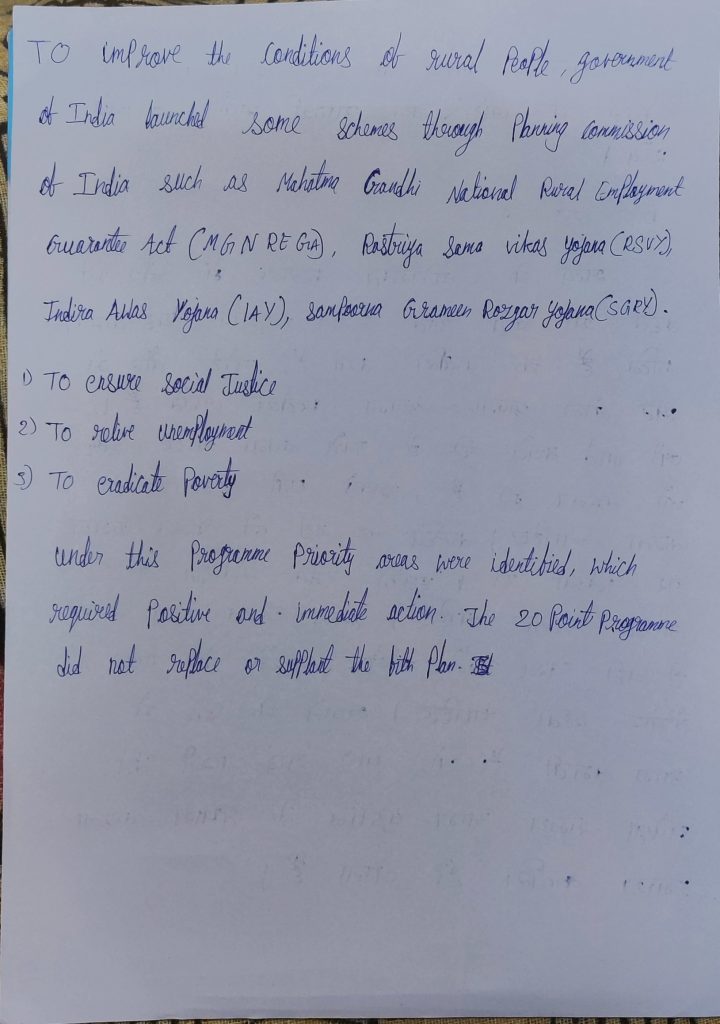 TO improve the conditions of rural People, government
of India launched some schemes through Planning commission
of India such as Mahatma Gandhi National Rural Employment
Guarantee Act (MGNREGA), Rastriya sama vikas yojana (RSVY),
Indira Awas Yojana (IAY), sampoorna Grameen Rozgar yojana (SGRY).
1) TO ensure social Justice
2) To relive unemployment
3) To eradicate Poverty
under this Programme Priority areas were identified, which
required Positive and immediate action. The 20 Point Programme
did not replace or supplant the fifth Plan.